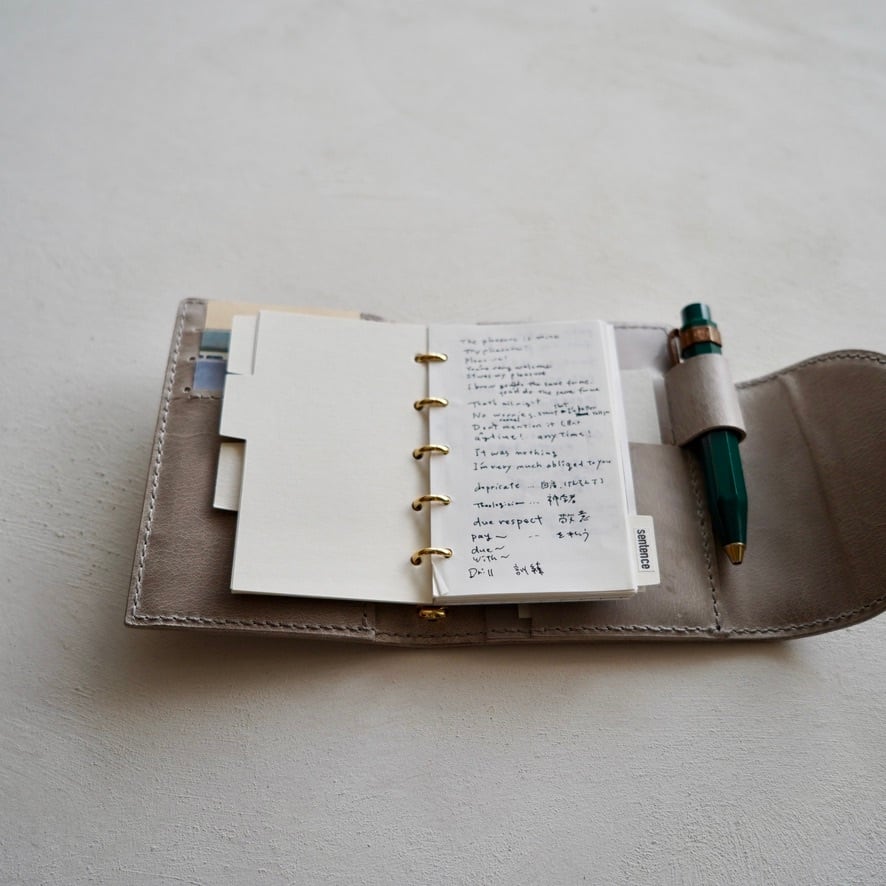 The pleasure is mine
My pleasure!
Pleasure!
You're very welcome
It was my pleasure
the same for me.
the same for me
That's all right
No worries.
Don't mention it
anytime! anytime!
It was nothing
I'm very much obliged to you
depricate ...
Theologician ... 神学者
due respect 敬意
pay〜 .. を払う
due〜
with〜
Drill 訓練
sentence